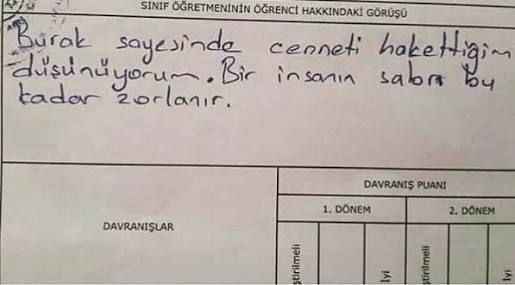 SINIF ÖĞRETMENİNİN ÖĞRENCİ HAKKINDAKİ GÖRÜŞÜ
Burak sayesinde cenneti hakettiğim
düşünüyorum. Bir insanın sabrı bu
kadar zorlanır.
DAVRANIŞ PUANI
1. DÖNEM 2. DÖNEM
DAVRANIŞLAR
ştirilmeli İyi ştirilmeli İyi